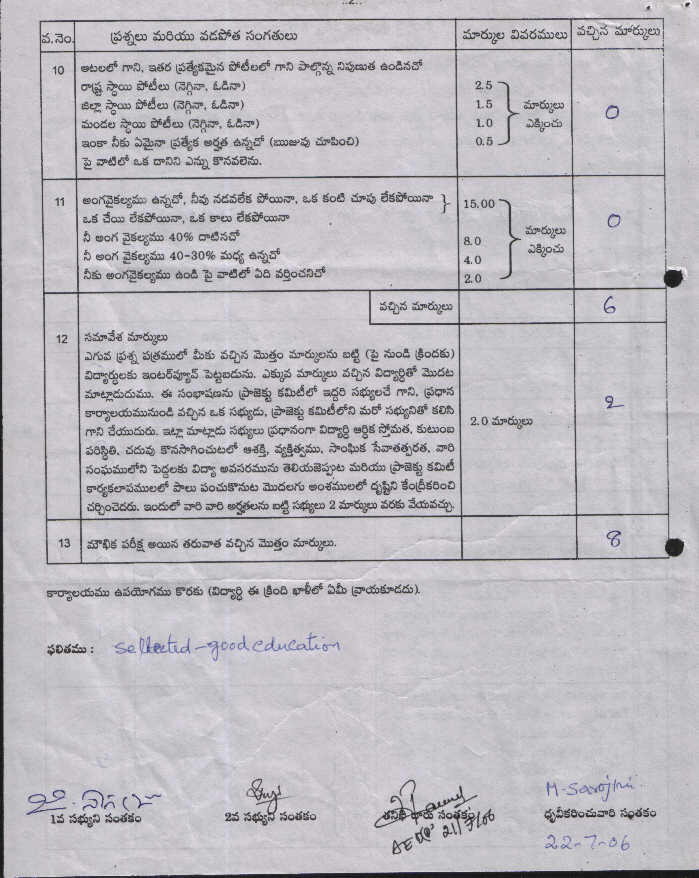 ..2..
వ.నెం. ప్రశ్నలు మరియు వడపోత సంగతులు మార్కుల వివరములు వచ్చిన మార్కులు
10 ఆటలలో గాని, ఇతర ప్రత్యేకమైన పోటీలలో గాని పాల్గొన్న నిపుణత ఉండినచో
రాష్ట్ర స్థాయి పోటీలు (నెగ్గినా, ఓడినా) 2.5
జిల్లా స్థాయి పోటీలు (నెగ్గినా, ఓడినా) 1.5 మార్కులు 0
మండల స్థాయి పోటీలు (నెగ్గినా, ఓడినా) 1.0 ఎక్కించు
ఇంకా నీకు ఏమైనా ప్రత్యేక అర్హత ఉన్నచో (ఋజువు చూపించి) 0.5
పై వాటిలో ఒక దానిని ఎన్ను కొనవలెను.
11 అంగవైకల్యము ఉన్నచో, నీవు నడవలేక పోయినా, ఒక కంటి చూపు లేకపోయినా 15.00
ఒక చేయి లేకపోయినా, ఒక కాలు లేకపోయినా 0
నీ అంగ వైకల్యము 40% దాటినచో 8.0 మార్కులు
నీ అంగ వైకల్యము 40-30% మధ్య ఉన్నచో 4.0 ఎక్కించు
నీకు అంగవైకల్యము ఉండి పై వాటిలో ఏది వర్తించనిచో 2.0
వచ్చిన మార్కులు 6
12 సమావేశ మార్కులు
ఎగువ ప్రశ్న పత్రములో మీకు వచ్చిన మొత్తం మార్కులను బట్టి (పై నుండి క్రిందకు)
విద్యార్ధులకు ఇంటర్‌వ్యూన్ పెట్టబడును. ఎక్కువ మార్కులు వచ్చిన విద్యార్ధితో మొదట
మాట్లాడుదుము. ఈ సంభాషణను ప్రాజెక్టు కమిటీలో ఇద్దరి సభ్యులచే గాని, ప్రధాన
కార్యాలయమునుండి వచ్చిన ఒక సభ్యుడు, ప్రాజెక్టు కమిటీలోని మరో సభ్యునితో కలిసి 2
గాని చేయుదురు. ఇట్లా మాట్లాడు సభ్యులు ప్రధానంగా విద్యార్ధి ఆర్ధిక స్తోమత, కుటుంబ 2.0 మార్కులు
పరిస్థితి, చదువు కొనసాగించుటలో ఆశక్తి, వ్యక్తిత్వము, సాంఘిక సేవాతత్పరత, వారి
సంఘములోని పెద్దలకు విద్యా అవసరమును తెలియజెప్పుట మరియు ప్రాజెక్టు కమిటీ
కార్యకలాపములలో పాలు పంచుకొనుట మొదలగు అంశములలో దృష్టిని కేంద్రీకరించి
చర్చించెదరు. ఇందులో వారి వారి అర్హతలను బట్టి సభ్యులు 2 మార్కులు వరకు వేయవచ్చు.
13 మౌఖిక పరీక్ష అయిన తరువాత వచ్చిన మొత్తం మార్కులు. 8
కార్యాలయము ఉపయోగము కొరకు (విద్యార్ధి ఈ క్రింది ఖాళీలో ఏమీ వ్రాయకూడదు).
ఫలితము : selected - good education
M. Sarojini
1వ సభ్యుని సంతకం 2వ సభ్యుని సంతకం తనిఖీ దారు సంతకం ధృవీకరించువారి సంతకం
21/7/06 22-7-06